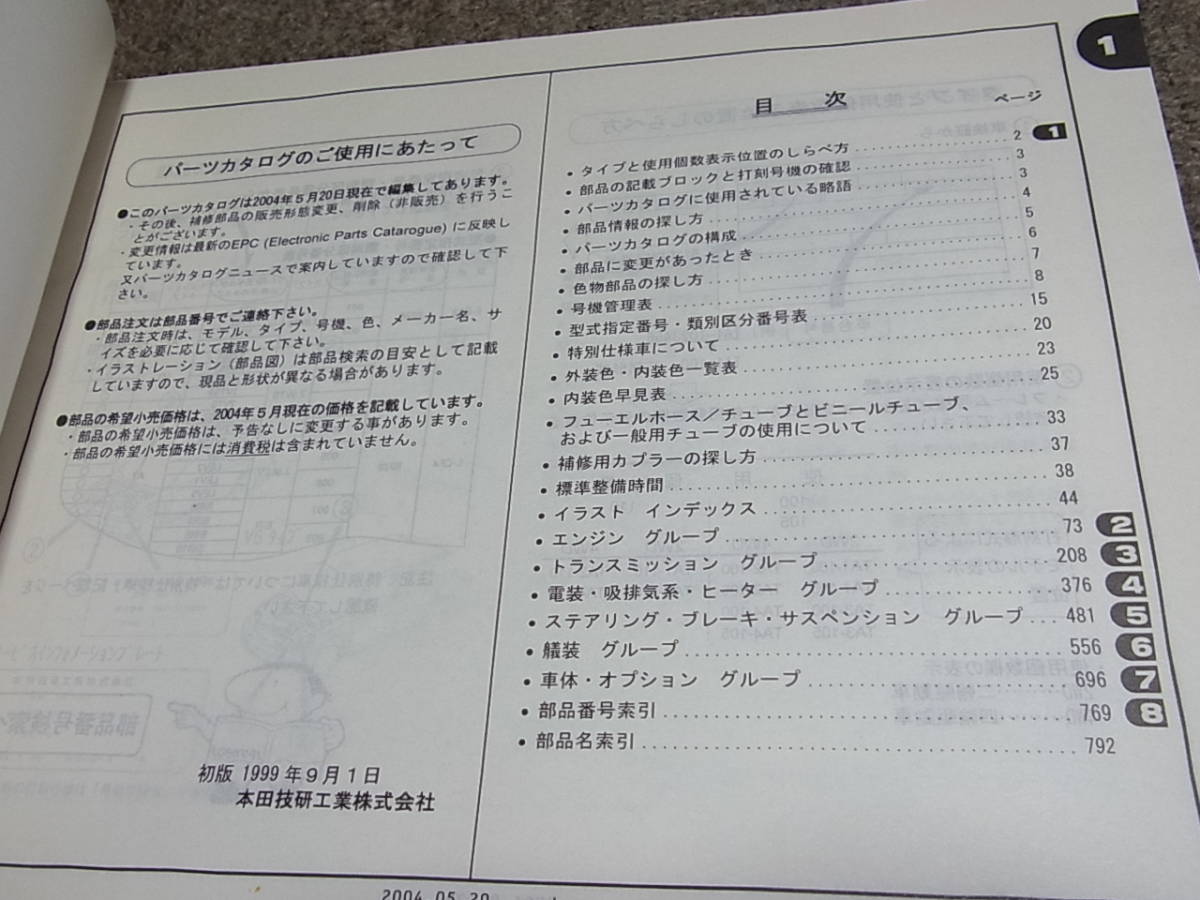 パーツカタログのご使用にあたって
●このパーツカタログは2004年5月20日現在で編集してあります。
・その後、補修部品の販売形態変更、削除（非販売）を行うこ
とがございます。
・変更情報は最新のEPC (Electronic Parts Catarogue) に反映し
ています。
又パーツカタログニュースで案内していますので確認して下
さい。
●部品注文は部品番号でご連絡下さい。
・部品注文時は、モデル、タイプ、号機、色、メーカー名、サ
イズを必要に応じて確認して下さい。
・イラストレーション（部品図）は部品検索の目安として記載
していますので、現品と形状が異なる場合があります。
●部品の希望小売価格は、2004年5月現在の価格を記載しています。
・部品の希望小売価格は、予告なしに変更する事があります。
・部品の希望小売価格には消費税は含まれていません。
初版 1999年9月1日
本田技研工業株式会社
1
目 次
ページ
・タイプと使用個数表示位置のしらべ方 2 1
・部品の記載ブロックと打刻号機の確認 3
・パーツカタログに使用されている略語 3
・部品情報の探し方 4
・パーツカタログの構成 5
・部品に変更があったとき 6
・色物部品の探し方 7
・号機管理表 8
・型式指定番号・類別区分番号表 15
・特別仕様車について 20
・外装色・内装色一覧表 23
・内装色早見表 25
・フューエルホース／チューブとビニールチューブ、
および一般用チューブの使用について 33
・補修用カプラーの探し方 37
・標準整備時間 38
・イラスト インデックス 44
・エンジン グループ 73 2
・トランスミッション グループ 208 3
・電装・吸排気系・ヒーター グループ 376 4
・ステアリング・ブレーキ・サスペンション グループ 481 5
・艤装 グループ 556 6
・車体・オプション グループ 696 7
・部品番号索引 769 8
・部品名索引 792
2004.05.20